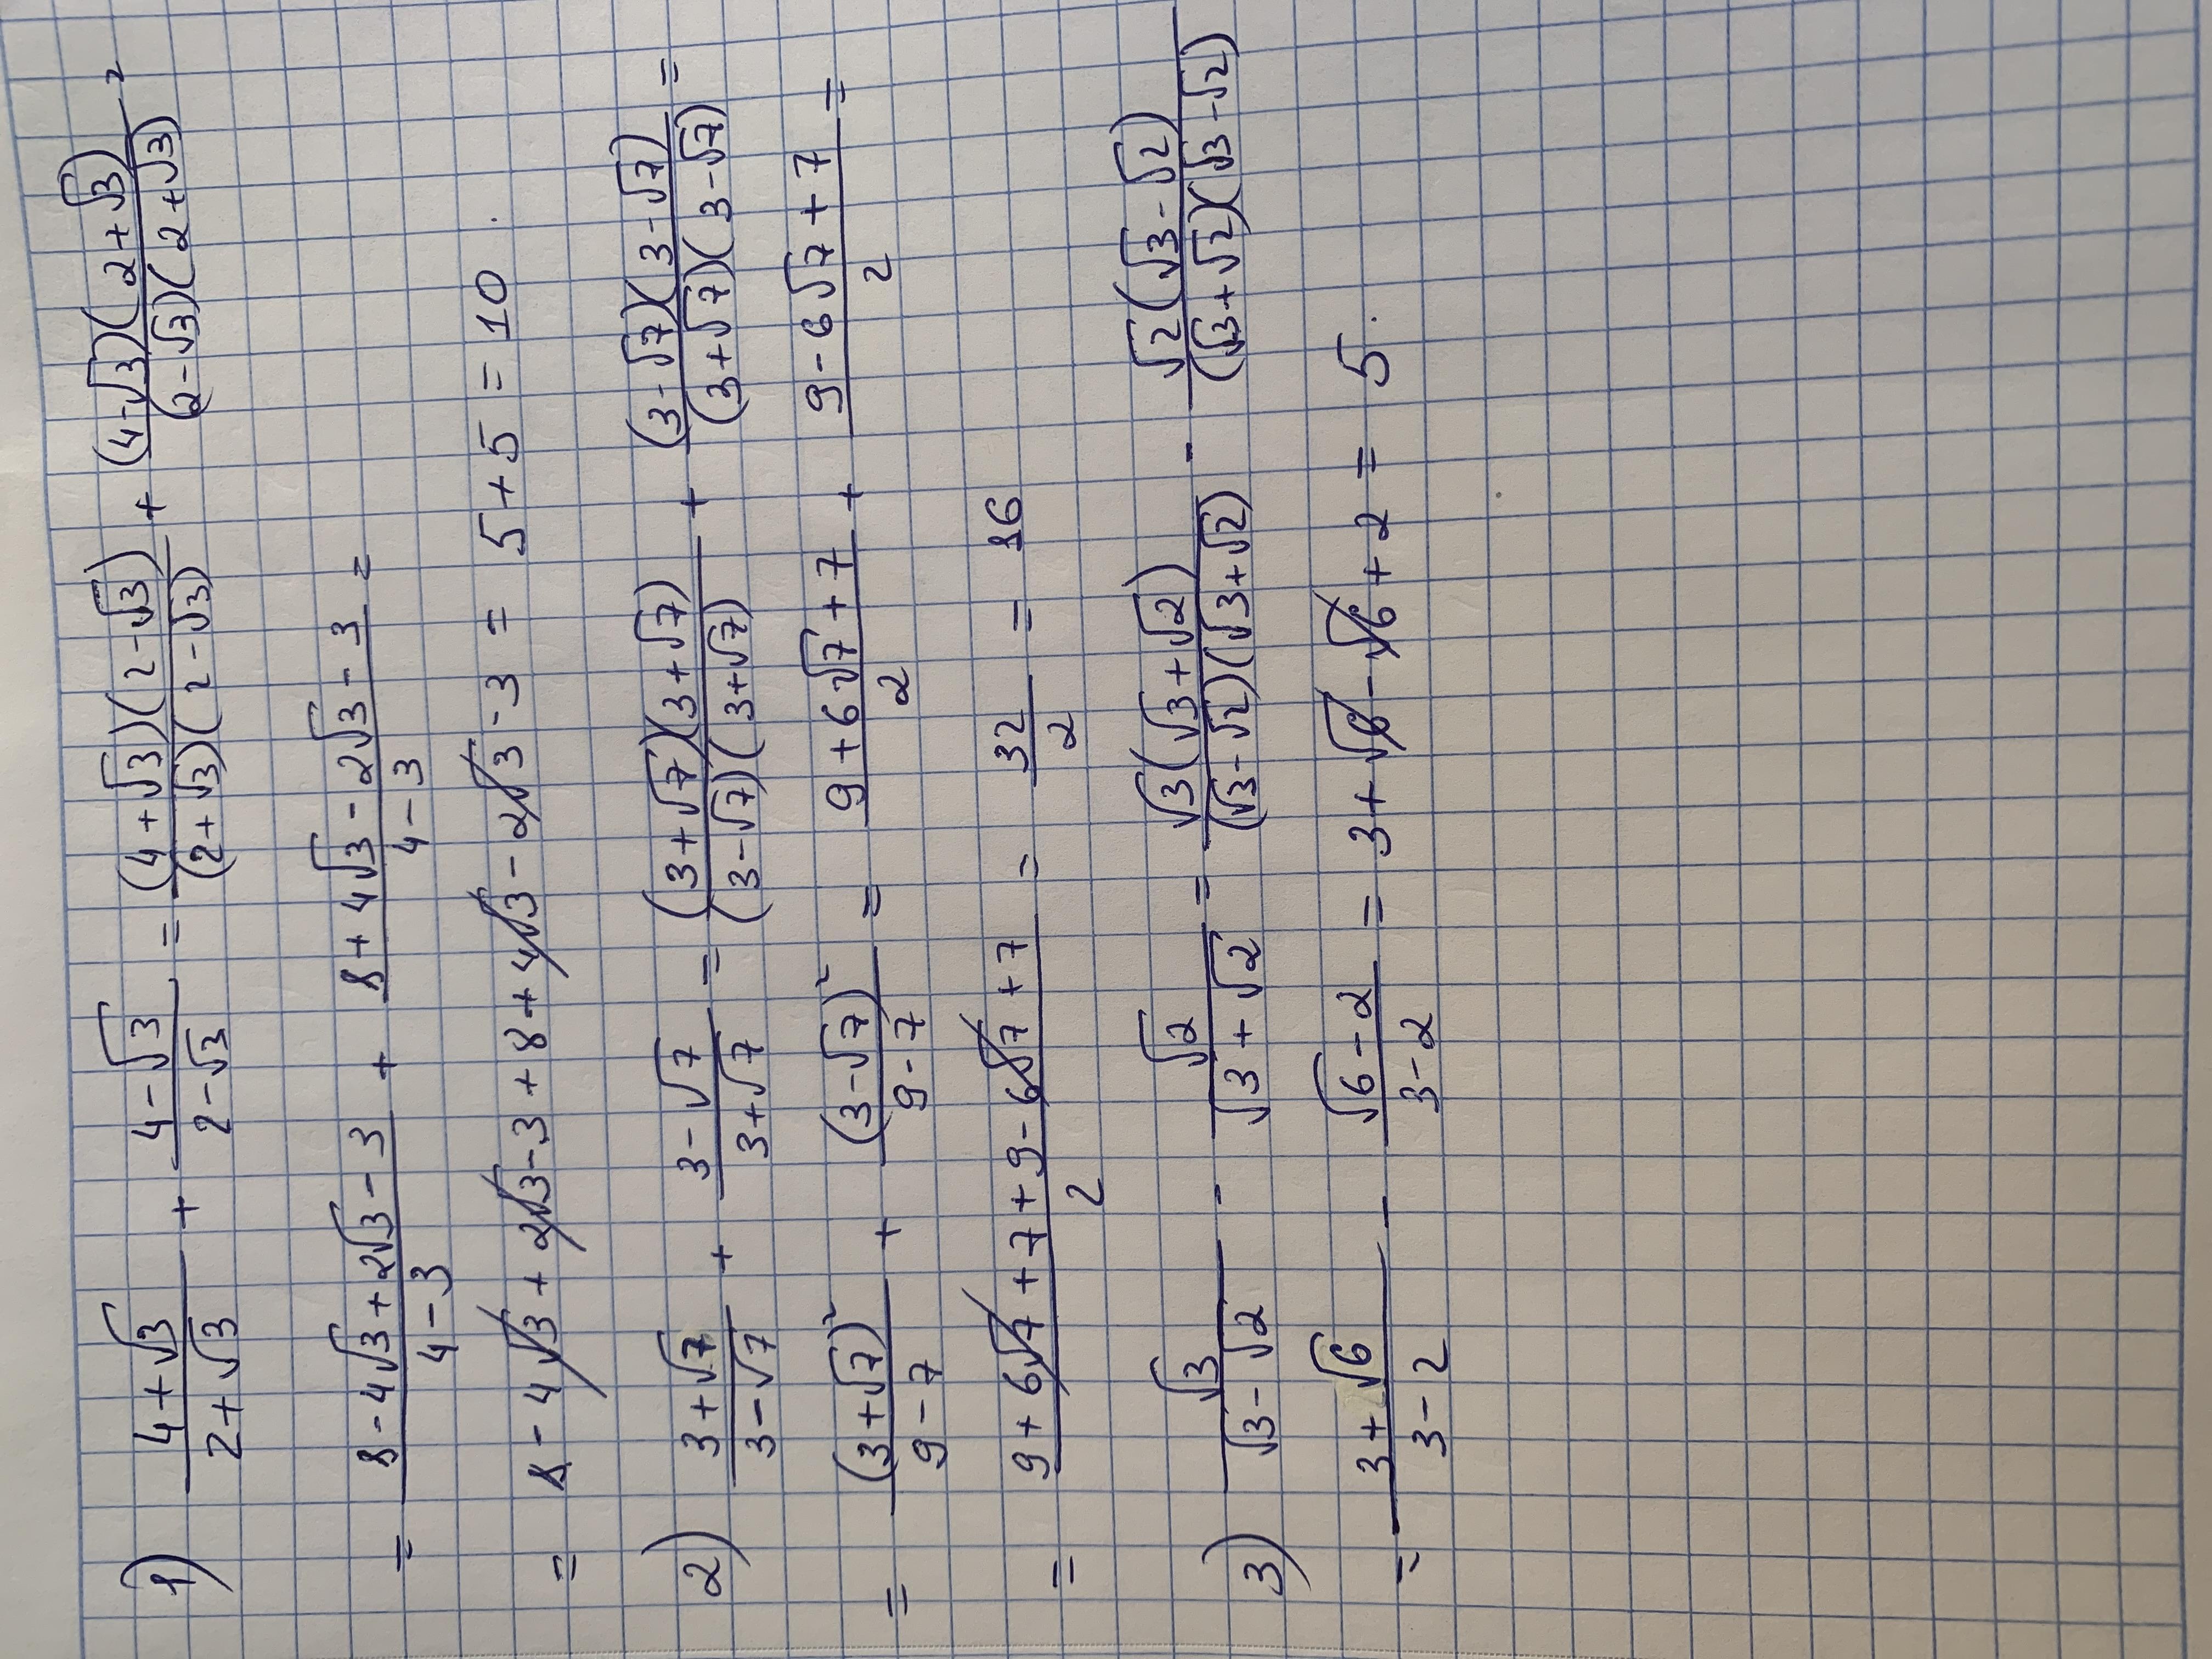 1) (4+√3)/(2+√3) + (4-√3)/(2-√3) = ((4+√3)(2-√3))/((2+√3)(2-√3)) + ((4-√3)(2+√3))/((2-√3)(2+√3)) =
= (8-4√3+2√3-3)/(4-3) + (8+4√3-2√3-3)/(4-3) =
= 8-4√3+2√3-3+8+4√3-2√3-3 = 5+5=10.
2) (3+√7)/(3-√7) + (3-√7)/(3+√7) = ((3+√7)(3+√7))/((3-√7)(3+√7)) + ((3-√7)(3-√7))/((3+√7)(3-√7)) =
= (3+√7)²/(9-7) + (3-√7)²/(9-7) = (9+6√7+7)/2 + (9-6√7+7)/2 =
= (9+6√7+7+9-6√7+7)/2 = 32/2 = 16
3) √3/(√3-√2) - √2/(√3+√2) = (√3(√3+√2))/((√3-√2)(√3+√2)) - (√2(√3-√2))/((√3+√2)(√3-√2))
= (3+√6)/(3-2) - (√6-2)/(3-2) = 3+√6-√6+2= 5.